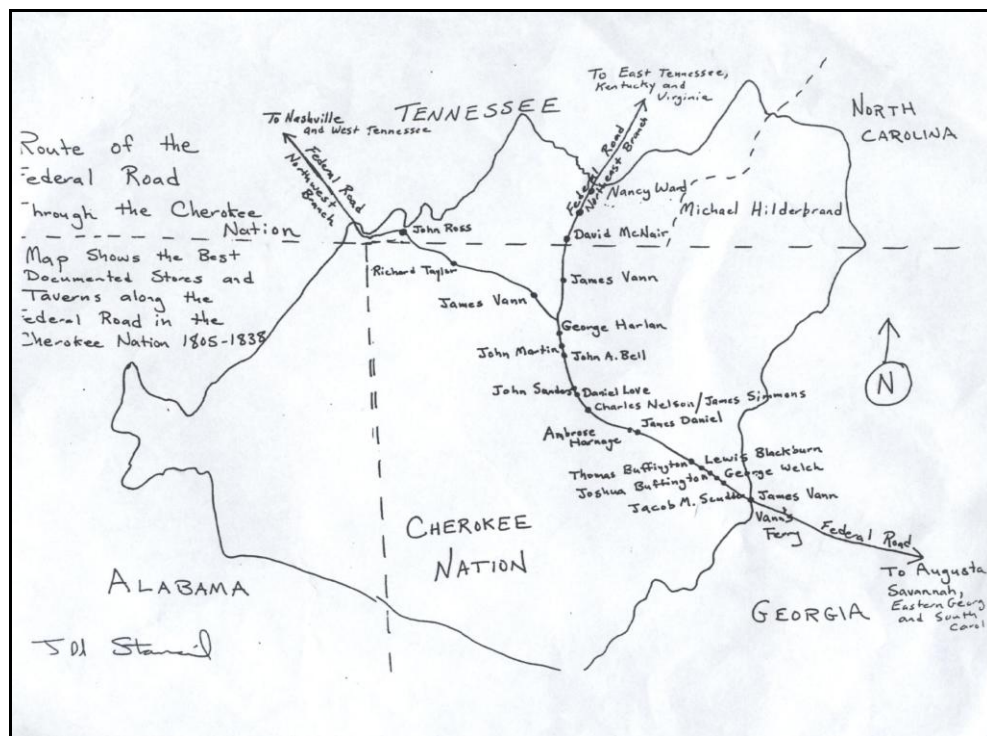 Route of the
Federal Road
Through the Cherokee
Nation
Map Shows the Best
Documented Stores and
Taverns along the
Federal Road in the
Cherokee Nation 1805-1838
To Nashville
and West Tennessee
Federal Road
Northwest
Branch
TENNESSEE
To East Tennessee,
Kentucky and
Virginia
Federal Road
Northeast Branch
NORTH
CAROLINA
Nancy Ward
Michael Hilderbrand
John Ross
David McNair
Richard Taylor
James Vann
James Vann
George Harlan
John Martin
John A. Bell
John Sanders
Daniel Love
Charles Nelson/James Simmons
Ambrose
Harnage
James Daniel
Thomas Buffington
Lewis Blackburn
Joshua Buffington
George Welch
Jacob M. Scudder
James Vann
Vann's
Ferry
Federal Road
To Augusta
Savannah,
Eastern Georg
and South
Carol
N
CHEROKEE
NATION
ALABAMA
GEORGIA